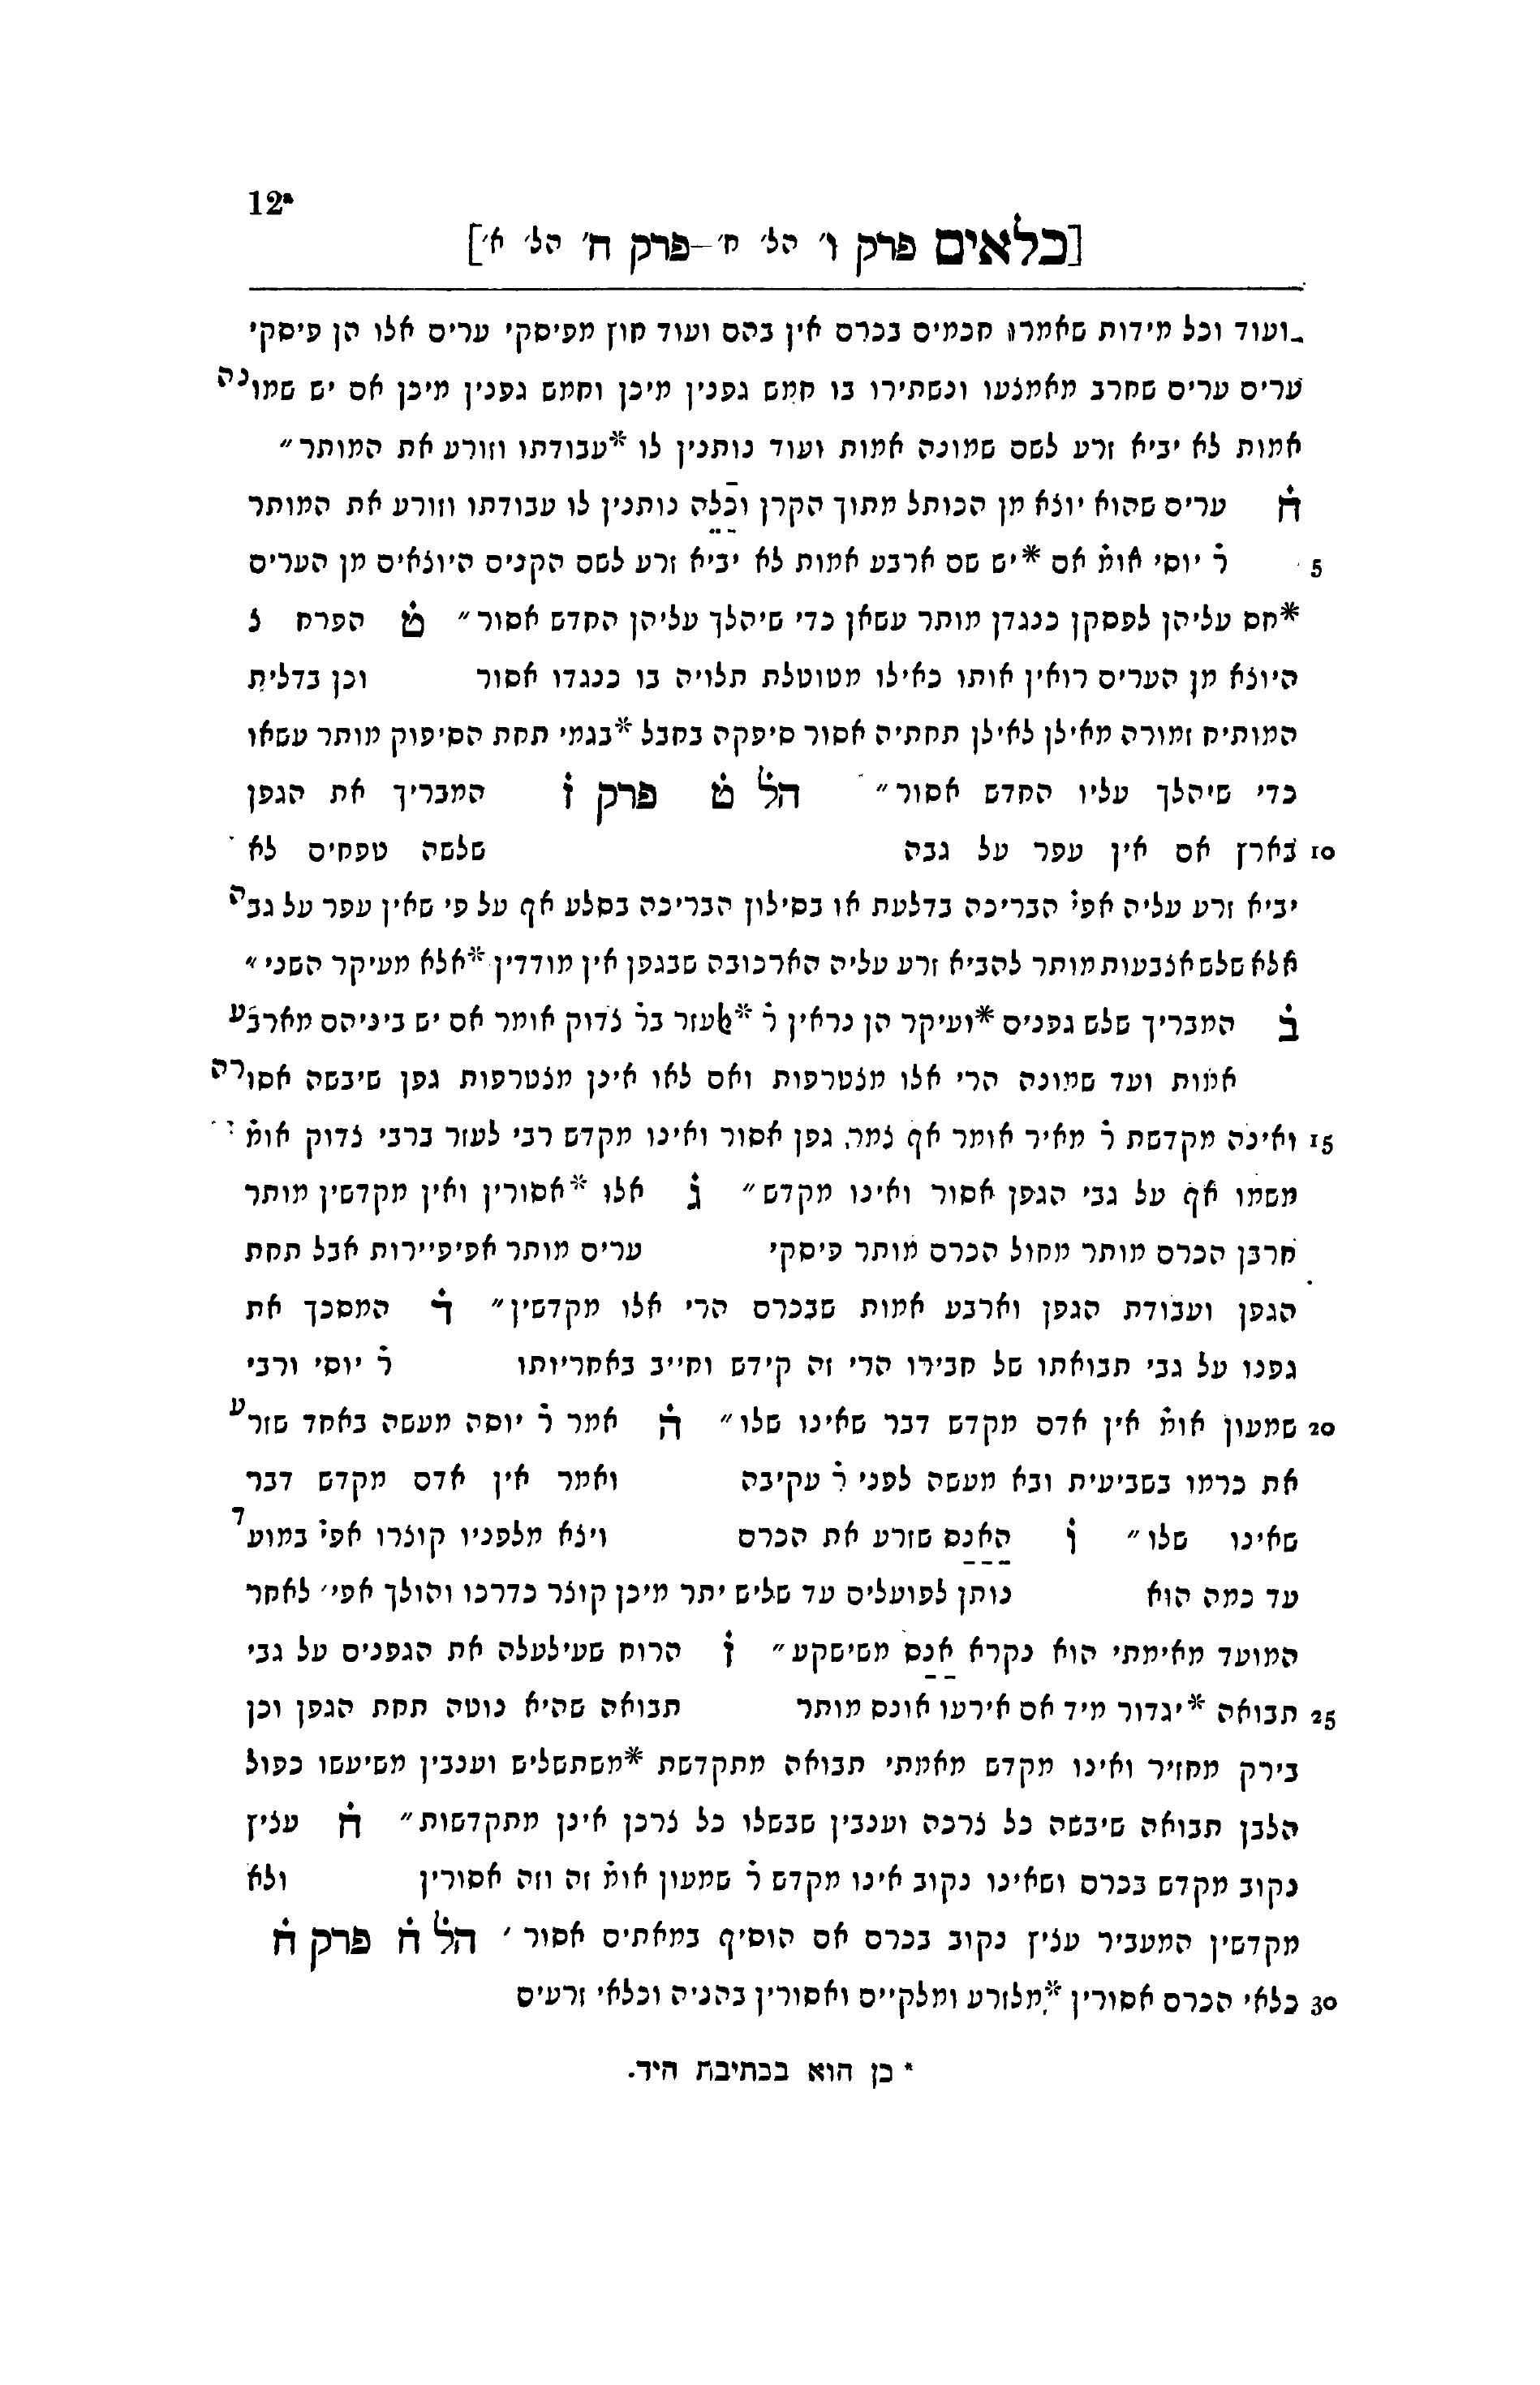 12ª
[כלאים פרק ו' הל' ח'–פרק ח' הל' א']
ועוד וכל מידות שאמרו חכמים בכרם אין בהם ועוד חוץ מפיסקי ערים אלו הן פיסקי
ערים ערים שחרב מאמצעו ונשתירו בו חמש גפנין מיכן וחמש גפנין מיכן אם יש שמונה
אמות לא יביא זרע לשם שמונה אמות ועוד נותנין לו *עבודתו וזורע את המותר״
ח̇ ערים שהוא יוצא מן הכותל מתוך הקרן וכלה נותנין לו עבודתו וזורע את המותר
5 ר̇ יוסי אומ̇ אם *יש שם ארבע אמות לא יביא זרע לשם הקנים היוצאים מן הערים
*חס עליהן לפסקן כנגדן מותר עשאן כדי שיהלך עליהן החדש אסור״ ט̇ הפרח צ
היוצא מן הערים רואין אותו כאילו מטוטלת תלויה בו כנגדו אסור וכן בדלית
המותיח זמורה מאילן לאילן תחתיה אסור סיפקה בחבל *בגמי תחת הסיפוק מותר עשאו
כדי שיהלך עליו החדש אסור״ הל̇ ט̇ פרק ז̇ המבריך את הגפן
10 בארץ אם אין עפר על גבה שלשה טפחים לא
יביא זרע עליה אפי̇ הבריכה בדלעת או בסילון הבריכה בסלע אף על פי שאין עפר על גבה
אלא שלש אצבעות מותר להביא זרע עליה הארכובה שבגפן אין מודדין *אלא מעיקר השני״
ב̇ המבריך שלש גפנים *ועיקר הן נראין ר̇ *לעזר בר̇ צדוק אומר אם יש ביניהם מארבע
אמות ועד שמונה הרי אלו מצטרפות ואם לאו אינן מצטרפות גפן שיבשה אסורה
15 ואינה מקדשת ר̇ מאיר אומר אף צמר גפן אסור ואינו מקדש רבי לעזר ברבי צדוק אומ̇
משמו אף על גבי הגפן אסור ואינו מקדש״ ג̇ אלו *אסורין ואין מקדשין מותר
חרבן הכרם מותר מחול הכרם מותר פיסקי ערים מותר אפיפיירות אבל תחת
הגפן ועבודת הגפן וארבע אמות שבכרם הרי אלו מקדשין״ ד̇ המסכך את
גפנו על גבי תבואתו של חבירו הרי זה קידש וחייב באחריותו ר̇ יוסי ורבי
20 שמעון אומ̇ אין אדם מקדש דבר שאינו שלו״ ה̇ אמר ר̇ יוסה מעשה באחד שזרע
את כרמו בשביעית ובא מעשה לפני ר̇ עקיבה ואמר אין אדם מקדש דבר
שאינו שלו״ ו̇ האנס שזרע את הכרם ויצא מלפניו קוצרו אפי̇ במועד
עד כמה הוא נותן לפועלים עד שליש יתר מיכן קוצר כדרכו והולך אפי׳ לאחר
המועד מאימתי הוא נקרא אנס משישקע״ ז̇ הרוח שעילעלה את הגפנים על גבי
25 תבואה *יגדור מיד אם אירעו אונס מותר תבואה שהיא נוטה תחת הגפן וכן
בירק מחזיר ואינו מקדש מאמתי תבואה מתקדשת *משתשליש וענבין משיעשו כפול
הלבן תבואה שיבשה כל צרכה וענבין שבשלו כל צרכן אינן מתקדשות״ ח̇ עציץ
נקוב מקדש בכרם ושאינו נקוב אינו מקדש ר̇ שמעון אומ̇ זה וזה אסורין ולא
מקדשין המעביר עציץ נקוב בכרם אם הוסיף במאתים אסור׳ הל̇ ח̇ פרק ח̇
30 כלאי הכרם אסורין *מלזרע ומלקיים ואסורין בהניה וכלאי זרעים
* כן הוא בכתיבת היד.